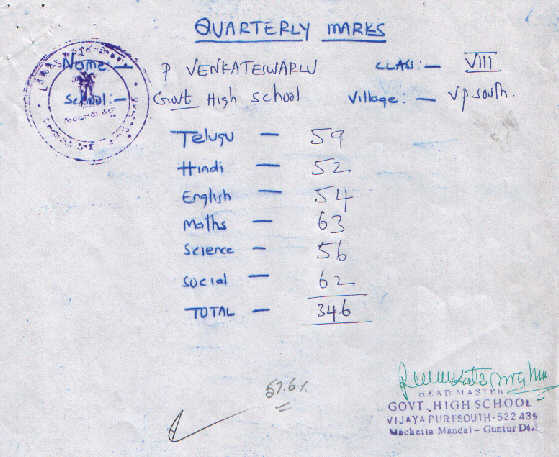 QUARTERLY MARKS
Name :- P VENKATESWARLU CLASS :- VIII
School :- Govt High School Village :- V p south.
Telugu - 59
Hindi - 52
English - 54
Maths - 63
Science - 56
Social - 62
TOTAL - 346
57.6%
HEAD MASTER
GOVT. HIGH SCHOOL
VIJAYA PURISOUTH-522 439
Macherla Mandal - Guntur Dist.